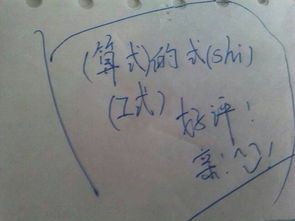 (算式)的式(shi)
(工式)
好评!
亲:^o^!